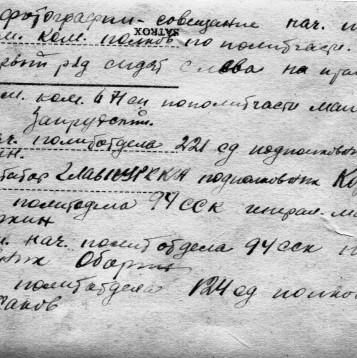 фотографии - совещание нач. п
м. ком. полков по политчасти.
SATROX
рвый ряд сидят слева на пра
м. ком. 671 сп по политчасти май
Запрудский.
ч. политотдела 221 сд подполковн
ин.
подполковник Ко
политодела 94 ССК генерал-м
ркин
м. нач. политотдела 94 ССК п
вник Обарин
политотдела 124 сд полков
саков